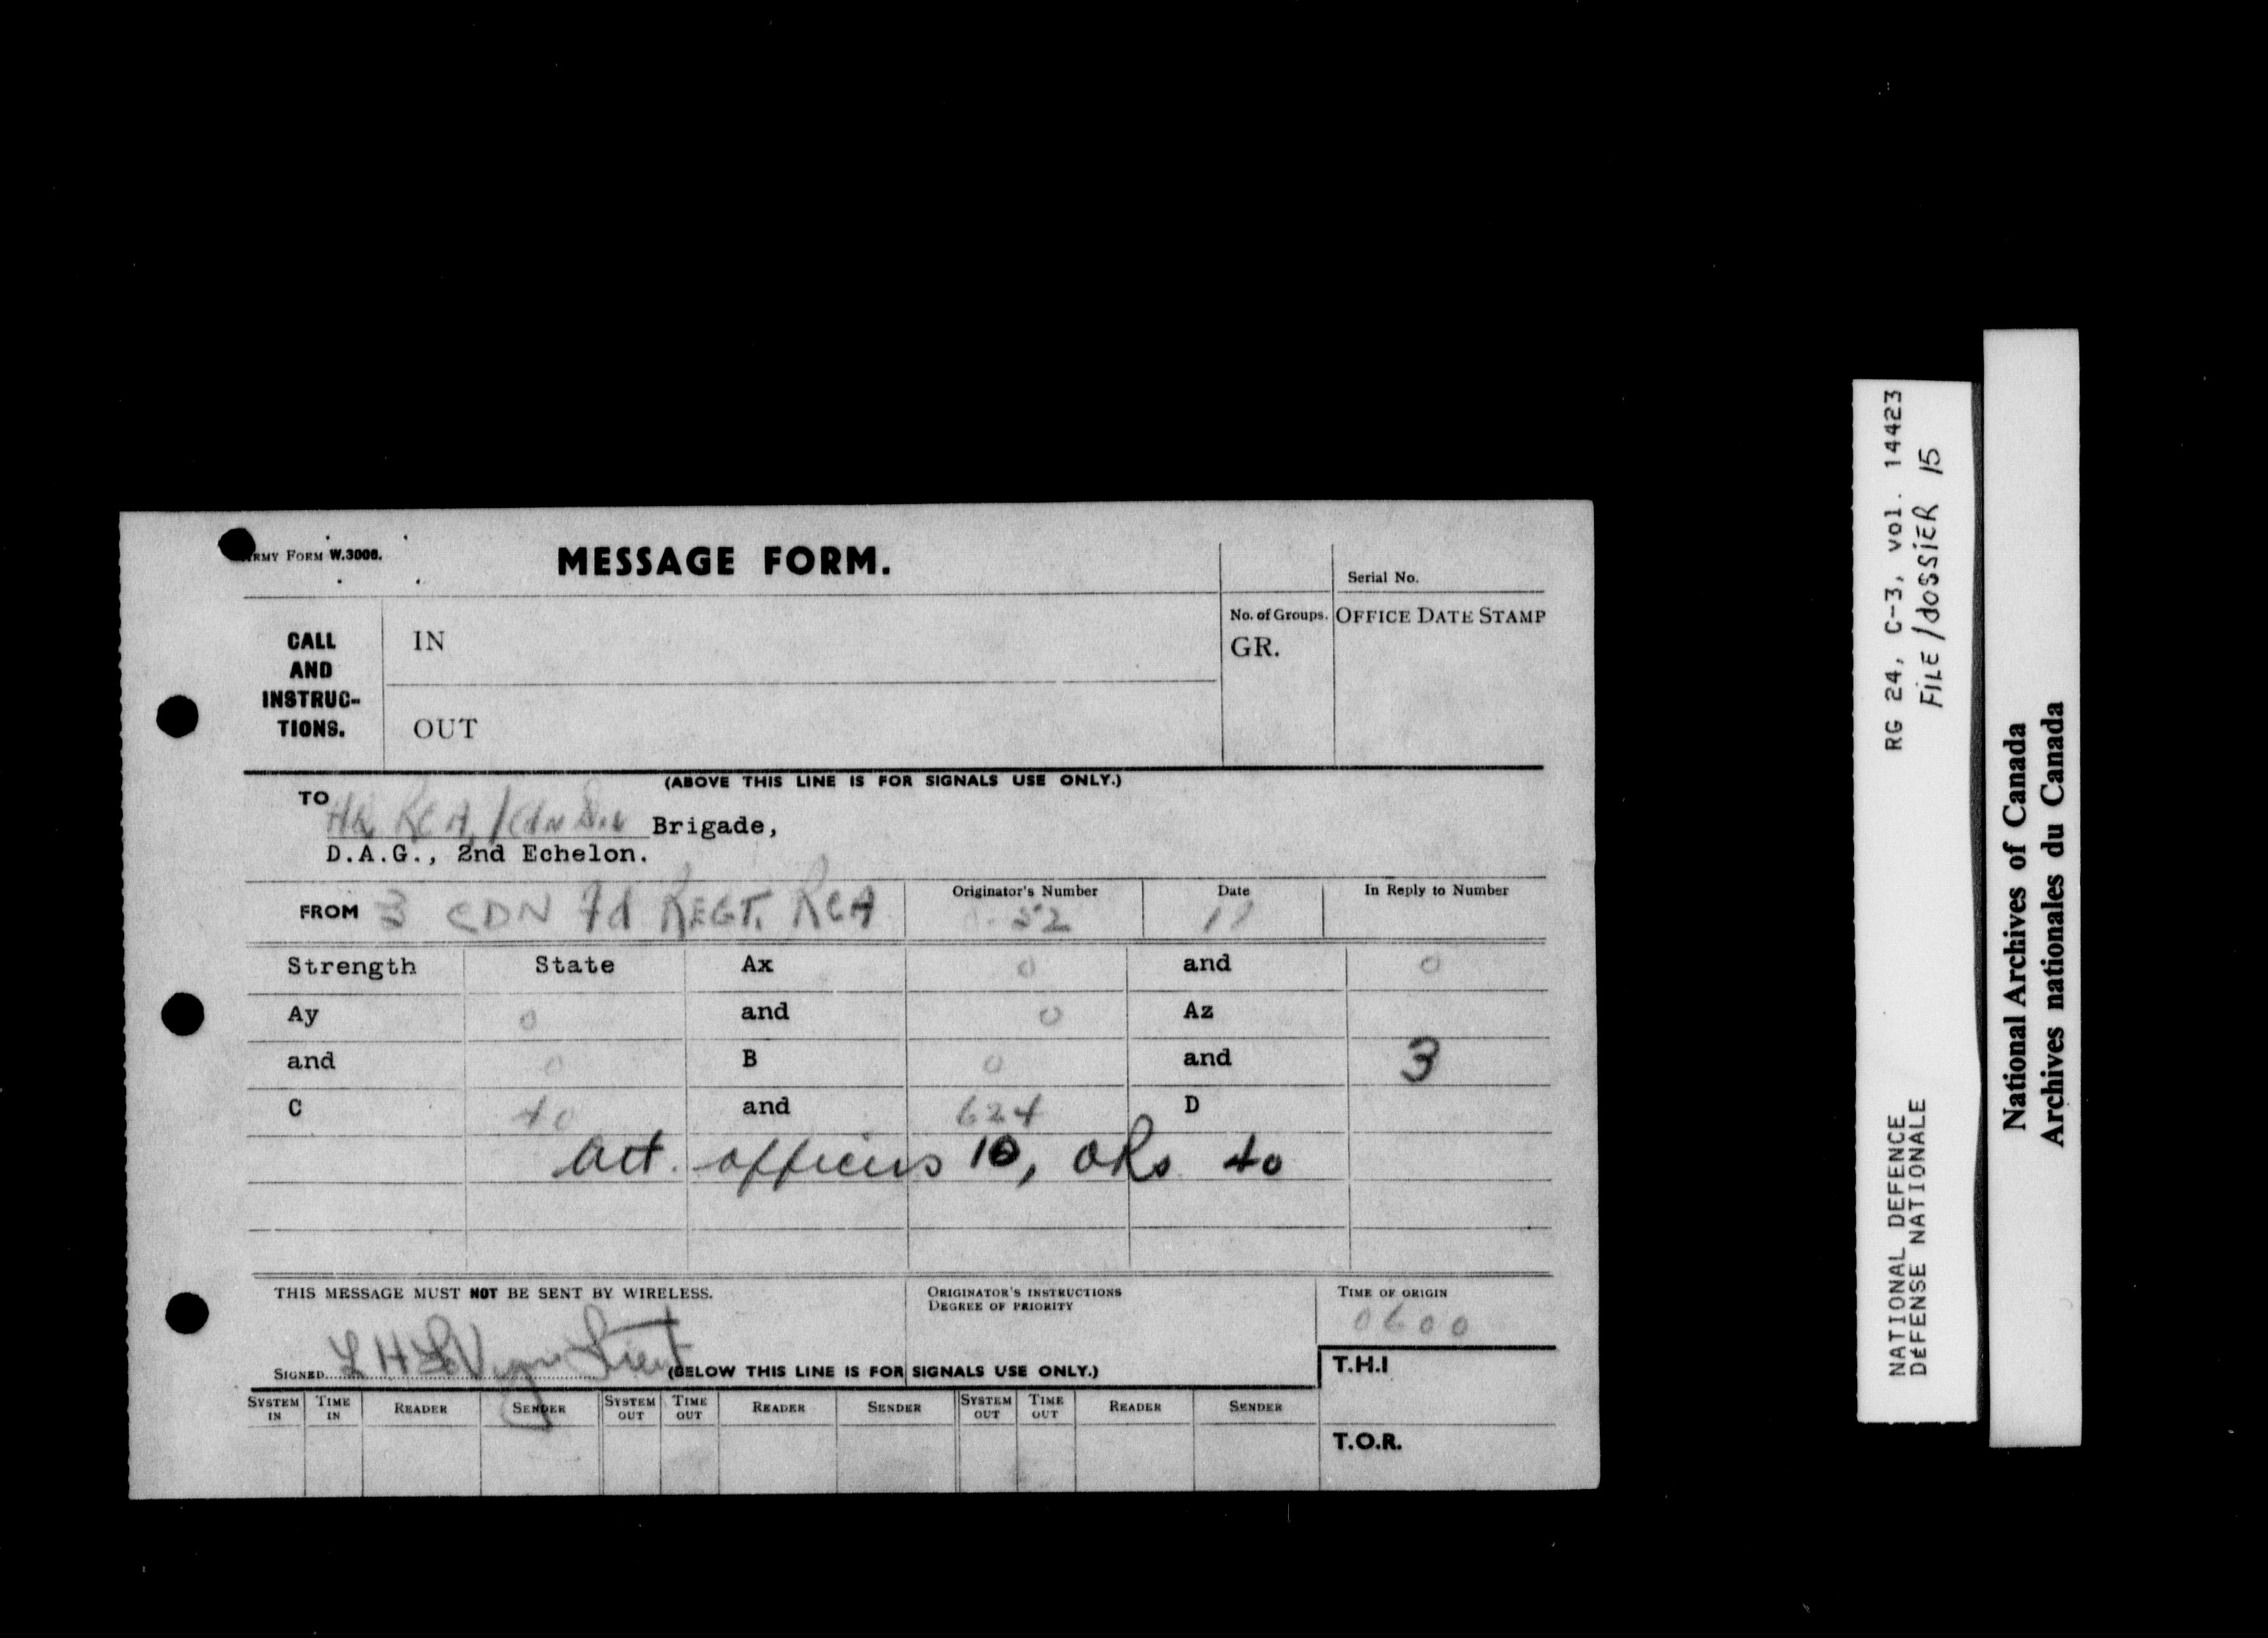 ARMY FORM W.3006.
MESSAGE FORM.
Serial No.
CALL AND INSTRUC- TIONS.
IN
OUT
No. of Groups.
GR.
OFFICE DATE STAMP
(ABOVE THIS LINE IS FOR SIGNALS USE ONLY.)
TO
HQ RCA, 1 Cdn Div Brigade,
D.A.G., 2nd Echelon.
FROM 3 CDN Fd REGT. RCA
Originator's Number
52
Date
In Reply to Number
Strength State Ax 0 and 0
Ay 0 and 0 Az
and 0 B 0 and 3
C 40 and 624 D
att. officers 10, ORs 40
THIS MESSAGE MUST NOT BE SENT BY WIRELESS.
ORIGINATOR'S INSTRUCTIONS
DEGREE OF PRIORITY
TIME OF ORIGIN
0600
SIGNED Lieut
(BELOW THIS LINE IS FOR SIGNALS USE ONLY.)
T.H.I
SYSTEM IN TIME IN READER SENDER SYSTEM OUT TIME OUT READER SENDER SYSTEM OUT TIME OUT READER SENDER
T.O.R.
RG 24, C-3, vol. 14423
FILE/dOSSiER 15
NATIONAL DEFENCE
DÉFENSE NATIONALE
National Archives of Canada
Archives nationales du Canada